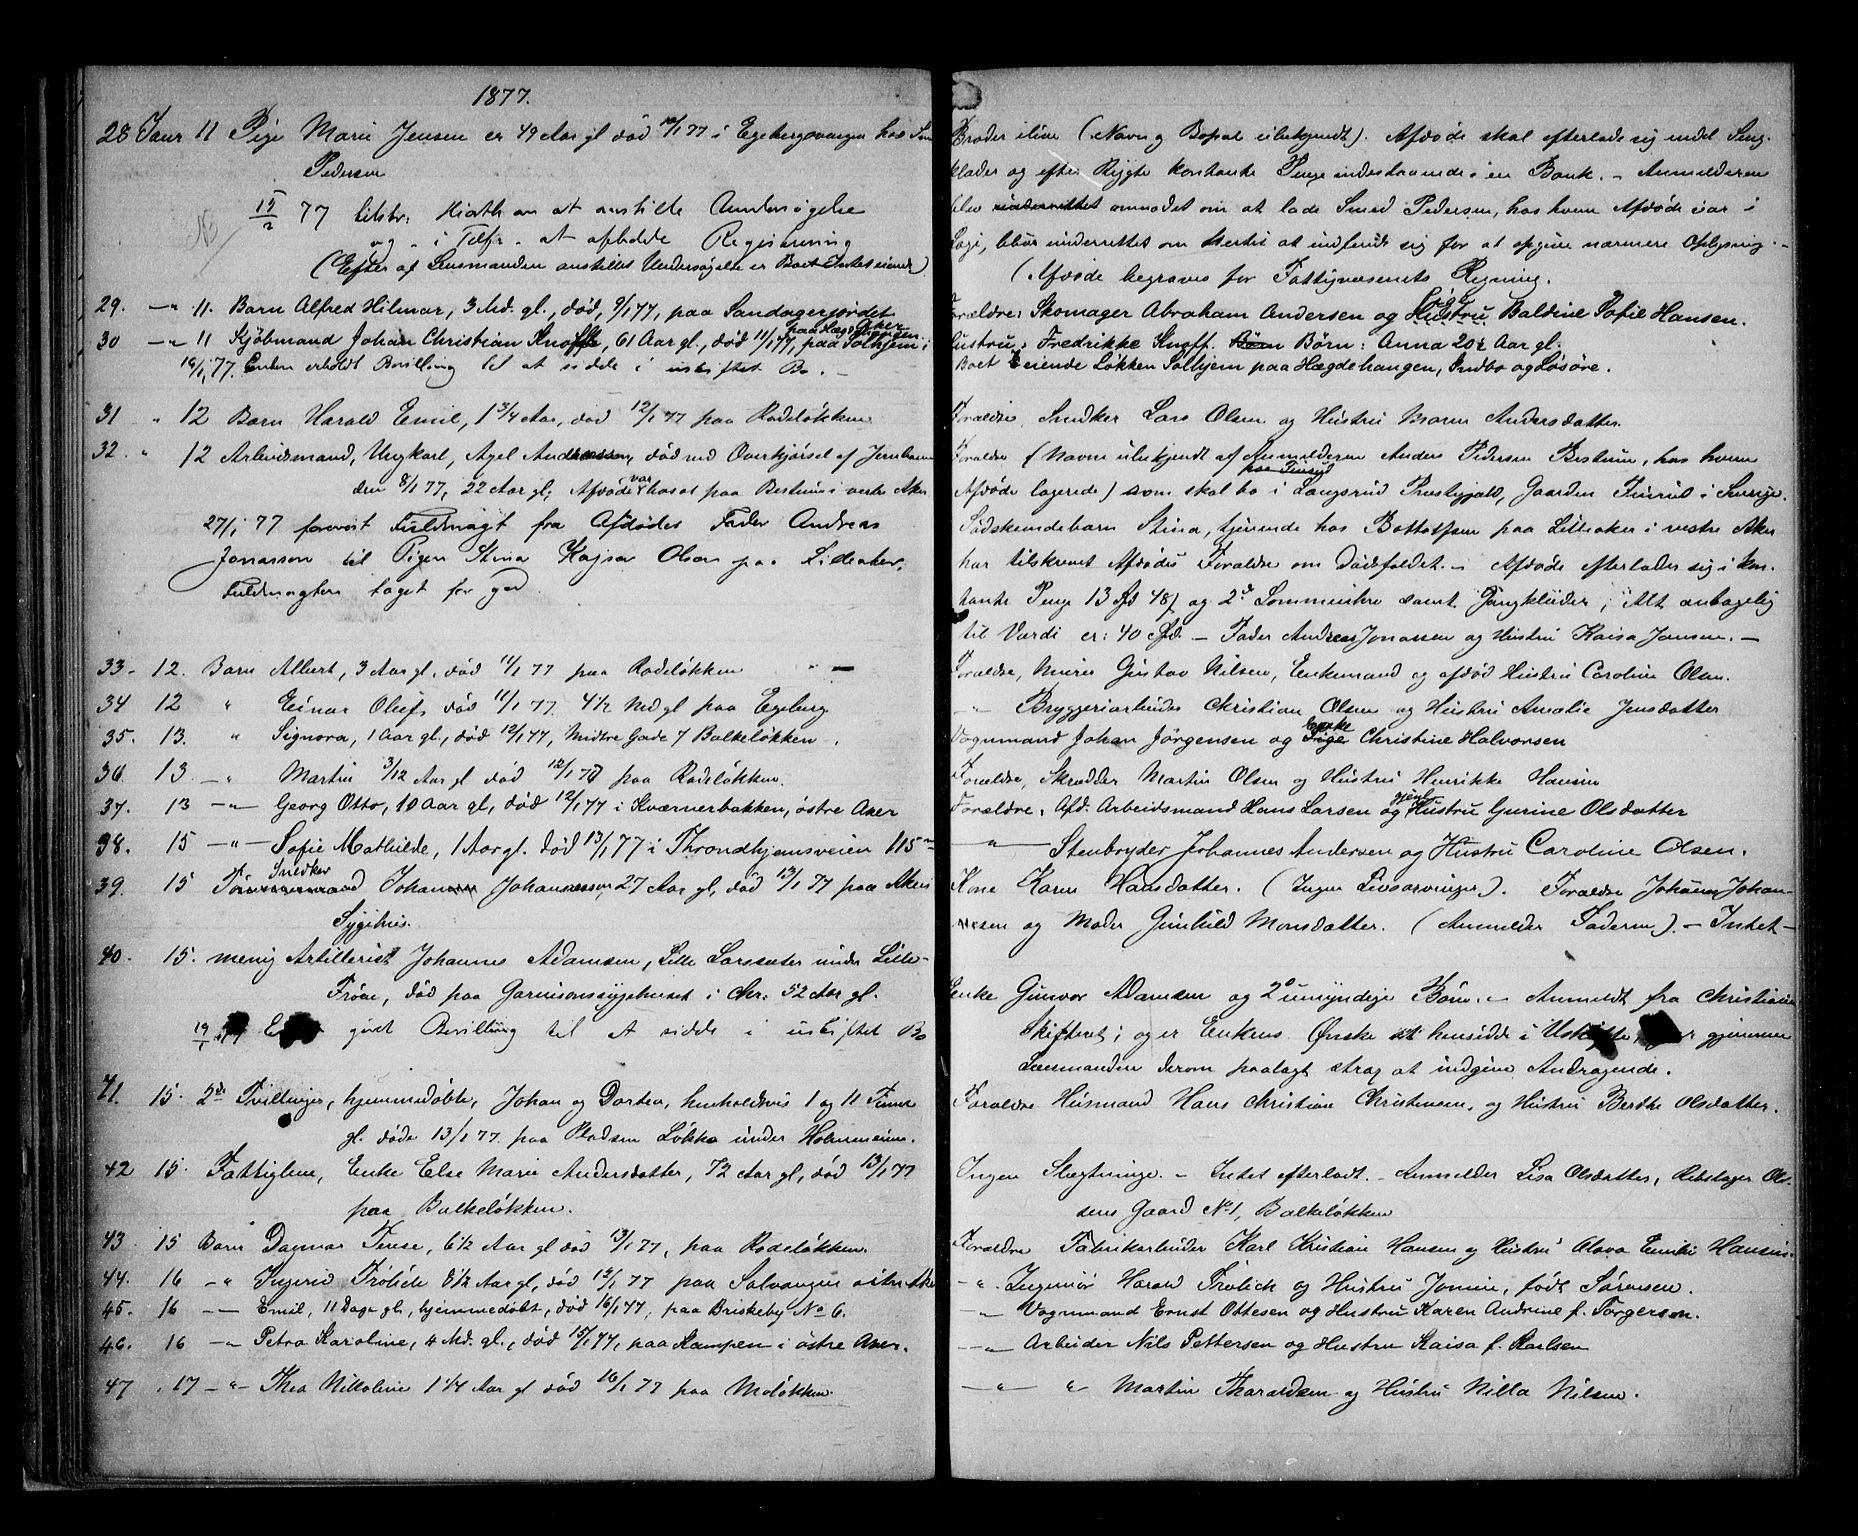 1877.
28 Januar 11 Pige Marie Jensen er 49 Aar gl død 10/1 77 i Egebergvangen hos
Pedersen
15/2 77 tilskr: at anstille Undersøgelse
og i Tilf. at afholde Registrering
(Efter af Lensmanden anstillet Undersøgelse er Boet Intet eiende)
29. –"– 11. Barn Alfred Hilmar, 3 Md. gl., død, 9/1 77, paa Sandagerjordet
30 –"– 11 Kjøbmand Johan Christian Knoff, 61 Aar gl., død 11/1 77, paa Solhjem i
Aker
16/1 77. Enken erholdt Bevilling til at sidde i uskiftet Bo. –
31 " 12 Barn Harald Emil, 1 3/4 Aar, død 12/1 77 paa Rodeløkken
32 " 12 Arbeidsmand, Ungkarl, Axel Andreassen, død ved Overkjørsel af Jernbanen
den 8/1 77, 22 Aar gl; Afdøde var bosat paa Bestum i vestre Aker
27/1 77 forevist Fuldmagt fra Afdødes Fader Andreas
Jonasson til Pigen Stina Kajsa Olson paa Lilleaker.
Fuldmagten taget for god
33 – 12. Barn Albert, 3 Aar gl. død 11/1 77 paa Rodeløkken " –
34 12 " Einar Oluf, død 11/1 77. 4 1/2 Md gl paa Egeberg
35. 13. " Signora, 1 Aar gl., død 12/1 77, Midtre Gade 7 Balkeløkken.
36 13 –"– Martin 3/12 Aar gl død 12/1 77 paa Rodeløkken.
37. 13 –"– Georg Otto, 10 Aar gl, død 12/1 77 i Kværnerbakken, østre Aker
38. 15 –"– Sofie Mathilde, 1 Aar gl. død 13/1 77 i Throndhjemsveien 115
39. 15 Snedker Johan Johannesson 27 Aar gl, død 13/1 77 paa Akers
Sygehus.
40. 15. menig Artillerist Johannes Adamsen, Lille Larssæter under Lille-
Frøen, død paa Garnisonssygehuset i Chr: 52 Aar gl.
19/1 givet Bevilling til at sidde i uskiftet Bo
41. 15. 2de Tvillinger, hjemmedøbte, Johan og Dorthea, henholdsvis 1 og 11 Timer
gl. døde 13/1 77. paa Pladsen Løkka under Holmenene.
42 15. Fattiglem, Enke Else Marie Andersdatter, 72 Aar gl, død 13/1 77
paa Balkeløkken.
43 15 Barn Dagmar Terese, 6 1/2 Aar gl død 13/1 77, paa Rodeløkken.
44. 16 –"– Ingerid Frølich 8 1/2 Aar gl, død 15/1 77 paa Solvangen østre Aker
45. 16 –"– Emil, 11 Dage gl, hjemmedøbt, død 16/1 77, paa Briskeby No 6.
46. 16 –"– Petra Karoline, 4 Md. gl., død 15/1 77, paa Kampen i østre Aker.
47 . 17 –"– Thea Nikoline 1 1/4 Aar gl død 16/1 77 paa Moløkken
Broder ilive (Navn og Bopæl ubekjendt). Afdøde skal efterlade sig endel Seng-
klæder og efter Rygte kontante Penge indestaaende i en Bank. – Anmelderen
blev underrettet anmodet om at lade Smed Pedersen, hos hvem Afdøde var i
Logi, blive underrettet om hertil at indfinde sig for at opgive nærmere Oplysning. –
(Afdøde begraves for Fattigvæsenets Regning.
Forældre: Skomager Abraham Andersen og Hustru Pige Baldine Sofie Hansen.
Hustru: Fredrikke Knoff. Børn Børn: Anna 20 1/2 Aar gl.
Boet Eiende Løkken Solhjem paa Hægdehaugen, Indbo og Løsøre.
Forældre Snedker Lars Olsen og Hustru Maren Andersdatter.
Forældre (Navne ubekjendt af Anmelderen Anders Pedersen Bestum, hos hvem
Afdøde logerede) som skal bo i Langsrud Præstegjæld, Gaarden Finsrud i Sverige.
Sødskendebarn Stina, tjenende hos Bottolfsen paa Lilleaker i vestre Aker
har tilskrevet Afdødes Forældre om Dødsfaldet. – Afdøde efterlader sig i kon-
tante Penge 13 Spd 48 ß og 2de Lommeuhre samt Gangklæder, Alt antagelig
til Værdi er: 40 Spd. – Fader Andreas Jonassen og Hustru Kaisa Jansen. –
Forældre, Murer Gustav Nilsen, Enkemand og afdød Hustru Caroline Olsen.
–"– Bryggeriarbeider Christian Olsen og Hustru Amalie Jensdatter
Vognmand Johan Jørgensen og Pige Christine Halvorsen
Forældre, Skrædder Martin Olsen og Hustru Henrikke Hansen
Forældre. Afd. Arbeidsmand Hans Larsen og gjenl. Hustru Gurine Olsdatter
–"– Stenbryder Johannes Andersen og Hustru Caroline Olsen.
Kone Karen Hansdatter. (Ingen Livsarvinger). Forældre Johannes Johan-
nesen og Moder Gunhild Monsdatter. (Anmelder Faderen). – Intet –
Enke Gunvor Adamsen og 2 umyndige Børn. – Anmeldt fra Christiania
Skifteret; og er Enkens Ønske at hensidde i Uskifte, gjennem
Lensmanden derom paalagt strax at indgive Andragende.
Forældre Husmand Hans Christian Christensen, og Hustru Berthe Olsdatter.
Ingen Slægtninge. – Intet efterladt. – Anmelder Lisa Olsdatter, Rebslager Ol-
sens Gaard No 1, Balkeløkken
Forældre Fabrikarbeider Karl Kristian Hansen og Hustru Olava Emilie Hansen.
–"– Ingeniør Harald Frølich og Hustru Jonine, født Sørensen.
–"– Vognmand Ernst Ottesen og Hustru Karen Andrine f. Torgersen.
–"– Arbeider Nils Pettersen og Hustru Kaisa f. Karlsen
–"– " Martin Tharaldsen og Hustru Nilla Nilsen.